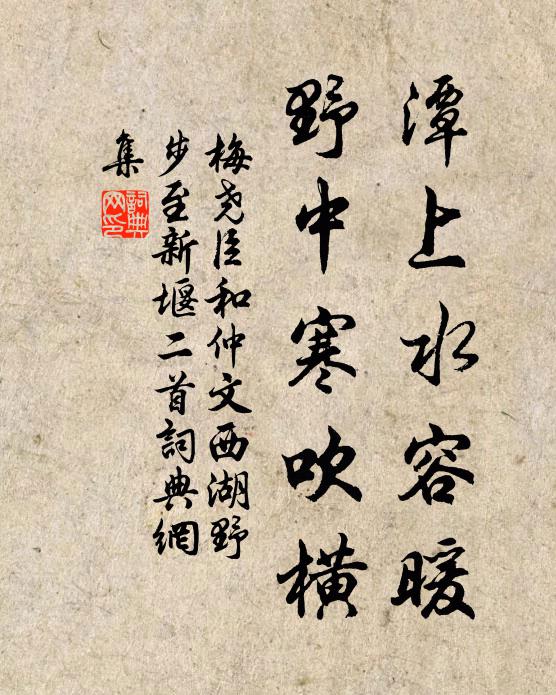 潭上水容暖
野中寒吹橫
梅堯臣和仲文西湖野
步至新堰二首詞典網
集
詞典網印